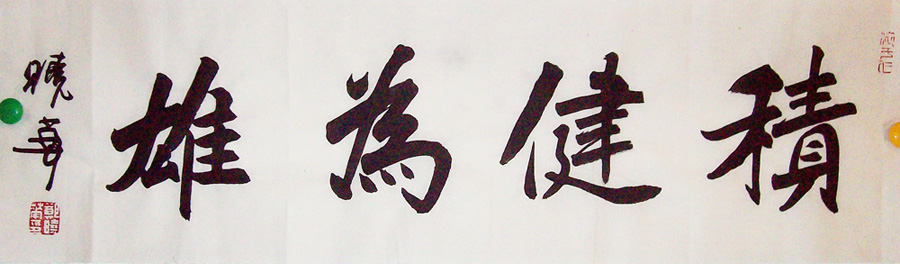 積健為雄
曉華